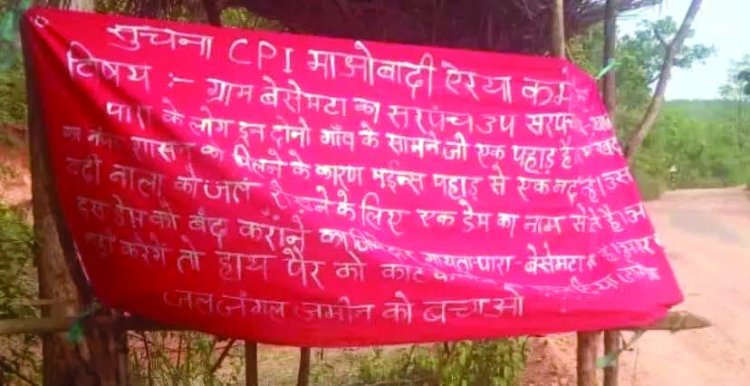 सुचना CPI माओबादी ऐरया कमे
विषय :- ग्राम बेसेमटा का सरपंच उप सरपंच
पारा के लोग इन दोनो गाँव के सामने जो एक पहाड़ है
का नंबर शासन को मिलने के कारण मईन्स पहाड़ से एक नदी है। उस
नदी नाला को जल रोकने के लिए एक डेम का नाम से है।
इस डेम को बंद कराने का गायतापारा - बेसेमटा
नही करेगें तो हाथ पैर को काट
जल जंगल जमीन को बचाओ